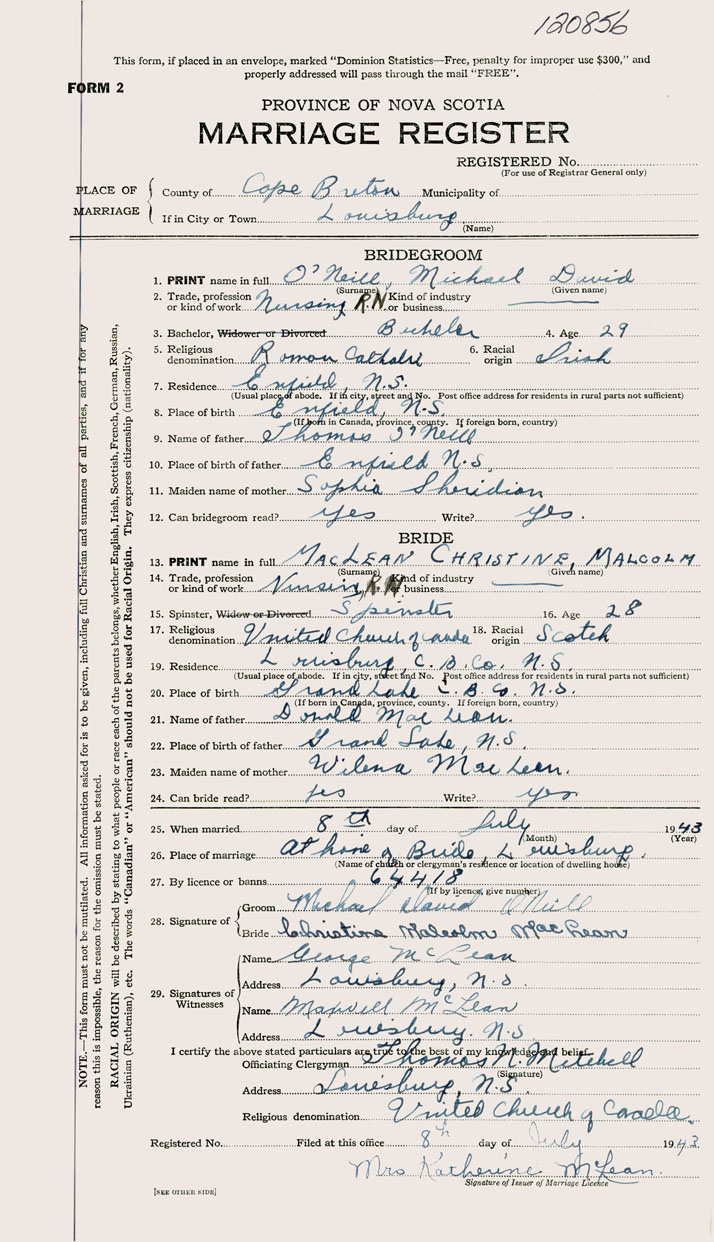 120856
This form, if placed in an envelope, marked "Dominion Statistics—Free, penalty for improper use $300," and
properly addressed will pass through the mail "FREE".
FORM 2
PROVINCE OF NOVA SCOTIA
MARRIAGE REGISTER
REGISTERED No.
(For use of Registrar General only)
PLACE OF MARRIAGE
County of Cape Breton Municipality of
If in City or Town Louisburg
(Name)
BRIDEGROOM
1. PRINT name in full O'Neill, Michael David
(Surname) (Given name)
2. Trade, profession or kind of work Nursing R.N. Kind of industry or business
3. Bachelor, Widower or Divorced Bachelor 4. Age 29
5. Religious denomination Roman Catholic 6. Racial origin Irish
7. Residence Enfield, N.S.
(Usual place of abode. If in city, street and No. Post office address for residents in rural parts not sufficient)
8. Place of birth Enfield, N.S.
(If born in Canada, province, county. If foreign born, country)
9. Name of father Thomas O'Neill
10. Place of birth of father Enfield N.S.
11. Maiden name of mother Sophia Sheridian
12. Can bridegroom read? yes Write? yes.
BRIDE
13. PRINT name in full MacLEAN CHRISTINE, MALCOLM
(Surname) Given name)
14. Trade, profession or kind of work Nursing R.N. Kind of industry or business
15. Spinster, Widow or Divorced Spinster 16. Age 28
17. Religious denomination United Church of Canada 18. Racial origin Scotch
19. Residence Louisburg, C.B.Co. N.S.
(Usual place of abode. If in city, street and No. Post office address for residents in rural parts not sufficient)
20. Place of birth Grand Lake C.B.Co. N.S.
(If born in Canada, province, county. If foreign born, country)
21. Name of father Donald MacLean.
22. Place of birth of father Grand Lake, N.S.
23. Maiden name of mother Wilena MacLean.
24. Can bride read? yes Write? yes
25. When married 8th day of July 1943
(Month) (Year)
26. Place of marriage At home of Bride, Louisburg.
(Name of church or clergyman's residence or location of dwelling house)
27. By licence or banns 64418
(If by licence, give number)
28. Signature of
Groom Michael David O'Neill
Bride Christine Malcolm MacLean
29. Signatures of Witnesses
Name George McLean
Address Louisburg, N.S.
Name Maxwell McLean
Address Louisburg. N.S.
I certify the above stated particulars are true to the best of my knowledge and belief.
Officiating Clergyman Thomas N. Mitchell
(Signature)
Address Louisburg, N.S.
Religious denomination United Church of Canada.
Registered No. Filed at this office 8th day of July 1943
Mrs Katherine McLean.
Signature of Issuer of Marriage Licence
[SEE OTHER SIDE]
NOTE.—This form must not be mutilated. All information asked for is to be given, including full Christian and surnames of all parties, and if for any
reason this is impossible, the reason for the omission must be stated.
RACIAL ORIGIN will be described by stating to what people or race each of the parents belongs, whether English, Irish, Scottish, French, German, Russian,
Ukrainian (Ruthenian), etc. The words "Canadian" or "American" should not be used for Racial Origin. They express citizenship (nationality).